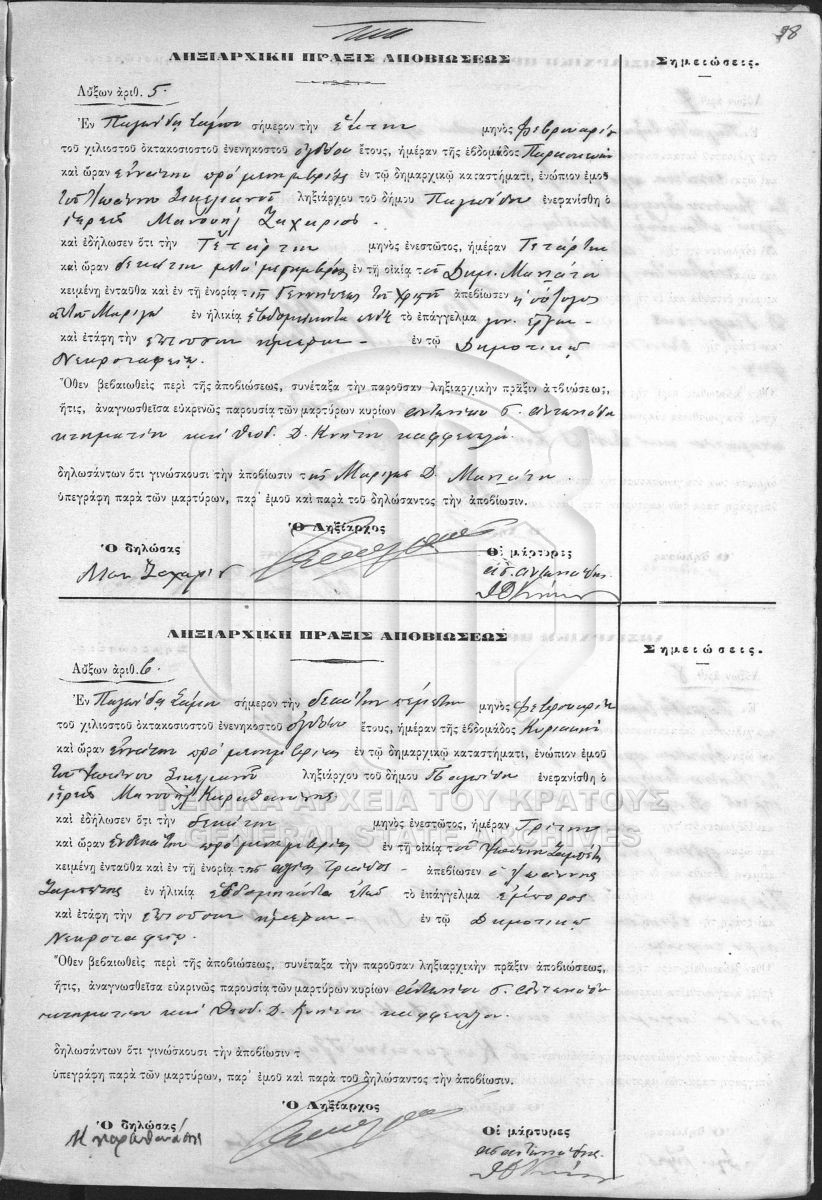 98
ΛΗΞΙΑΡΧΙΚΗ ΠΡΑΞΙΣ ΑΠΟΒΙΩΣΕΩΣ
Σημειώσεις.
Αὔξων ἀριθ. 5.
Ἐν Παγώνδᾳ Σάμου σήμερον τὴν ἕκτην μηνὸς Φεβρουαρίου
τοῦ χιλιοστοῦ ὀκτακοσιοστοῦ ἐνενηκοστοῦ ὀγδόου ἔτους, ἡμέραν τῆς ἑβδομάδος Παρασκευὴν
καὶ ὥραν ἐννάτην πρὸ μεσημβρίας ἐν τῷ δημαρχικῷ καταστήματι, ἐνώπιον ἐμοῦ
τοῦ Ἰωάννου Σικελιανοῦ ληξιάρχου τοῦ δήμου Παγώνδα ἐνεφανίσθη ὁ
ἱερεὺς Μανουὴλ Ζαχαρίου
καὶ ἐδήλωσεν ὅτι τὴν Τετάρτην μηνὸς ἐνεστῶτος, ἡμέραν Τετάρτην
καὶ ὥραν δεκάτην μετὰ μεσημβρίαν ἐν τῇ οἰκίᾳ τοῦ Δημ. Μανιάτου
κειμένῃ ἐνταῦθα καὶ ἐν τῇ ἐνορίᾳ τῆς Γεννήσεως τοῦ Χριστοῦ ἀπεβίωσεν ἡ σύζυγος
αὐτοῦ Μαριγὼ ἐν ἡλικίᾳ ἑβδομήκοντα τὸ ἐπάγγελμα
καὶ ἐτάφη τὴν ἐπιοῦσαν ἡμέραν - ἐν τῷ Δημοτικῷ
Νεκροταφείῳ.
Ὅθεν βεβαιωθεὶς περὶ τῆς ἀποβιώσεως, συνέταξα τὴν παροῦσαν ληξιαρχικὴν πρᾶξιν ἀποβιώσεως,
ἥτις, ἀναγνωσθεῖσα εὐκρινῶς παρουσίᾳ τῶν μαρτύρων κυρίων Ἀντωνίου
κτηματίου καὶ Θεοδ. Δ. καφφεπώλου
δηλωσάντων ὅτι γινώσκουσι τὴν ἀποβίωσιν τῆς Μαριγῶς Δ. Μανιάτου
ὑπεγράφη παρὰ τῶν μαρτύρων, παρ' ἐμοῦ καὶ παρὰ τοῦ δηλώσαντος τὴν ἀποβίωσιν.
Ὁ Ληξίαρχος
Ὁ δηλώσας
Οἱ μάρτυρες
ΛΗΞΙΑΡΧΙΚΗ ΠΡΑΞΙΣ ΑΠΟΒΙΩΣΕΩΣ
Σημειώσεις.
Αὔξων ἀριθ. 6.
Ἐν Παγώνδᾳ Σάμου σήμερον τὴν δεκάτην πέμπτην μηνὸς Φεβρουαρίου
τοῦ χιλιοστοῦ ὀκτακοσιοστοῦ ἐνενηκοστοῦ ὀγδόου ἔτους, ἡμέραν τῆς ἑβδομάδος Κυριακὴν
καὶ ὥραν ἐννάτην πρὸ μεσημβρίας ἐν τῷ δημαρχικῷ καταστήματι, ἐνώπιον ἐμοῦ
τοῦ Ἰωάννου Σικελιανοῦ ληξιάρχου τοῦ δήμου Παγώνδα ἐνεφανίσθη ὁ
ἱερεὺς Μανουὴλ Καραθανάσης
ΓΕΝΙΚΑ ΑΡΧΕΙΑ ΤΟΥ ΚΡΑΤΟΥΣ
GENERAL STATE ARCHIVES
καὶ ἐδήλωσεν ὅτι τὴν δεκάτην μηνὸς ἐνεστῶτος, ἡμέραν Τρίτην
καὶ ὥραν ἑνδεκάτην πρὸ μεσημβρίας ἐν τῇ οἰκίᾳ τοῦ Ἰωάννου
κειμένῃ ἐνταῦθα καὶ ἐν τῇ ἐνορίᾳ τῆς Ἁγίας Τριάδος - ἀπεβίωσεν ὁ Ἰωάννης
ἐν ἡλικίᾳ ἑβδομήκοντα ἐτῶν τὸ ἐπάγγελμα ἔμπορος
καὶ ἐτάφη τὴν ἐπιοῦσαν ἡμέραν - ἐν τῷ Δημοτικῷ
Νεκροταφείῳ.
Ὅθεν βεβαιωθεὶς περὶ τῆς ἀποβιώσεως, συνέταξα τὴν παροῦσαν ληξιαρχικὴν πρᾶξιν ἀποβιώσεως,
ἥτις, ἀναγνωσθεῖσα εὐκρινῶς παρουσίᾳ τῶν μαρτύρων κυρίων Ἀντωνίου
κτηματίου καὶ Θεοδ. Δ. καφφεπώλου.
δηλωσάντων ὅτι γινώσκουσι τὴν ἀποβίωσιν τ
ὑπεγράφη παρὰ τῶν μαρτύρων, παρ' ἐμοῦ καὶ παρὰ τοῦ δηλώσαντος τὴν ἀποβίωσιν.
Ὁ Ληξίαρχος
Ὁ δηλώσας
Οἱ μάρτυρες